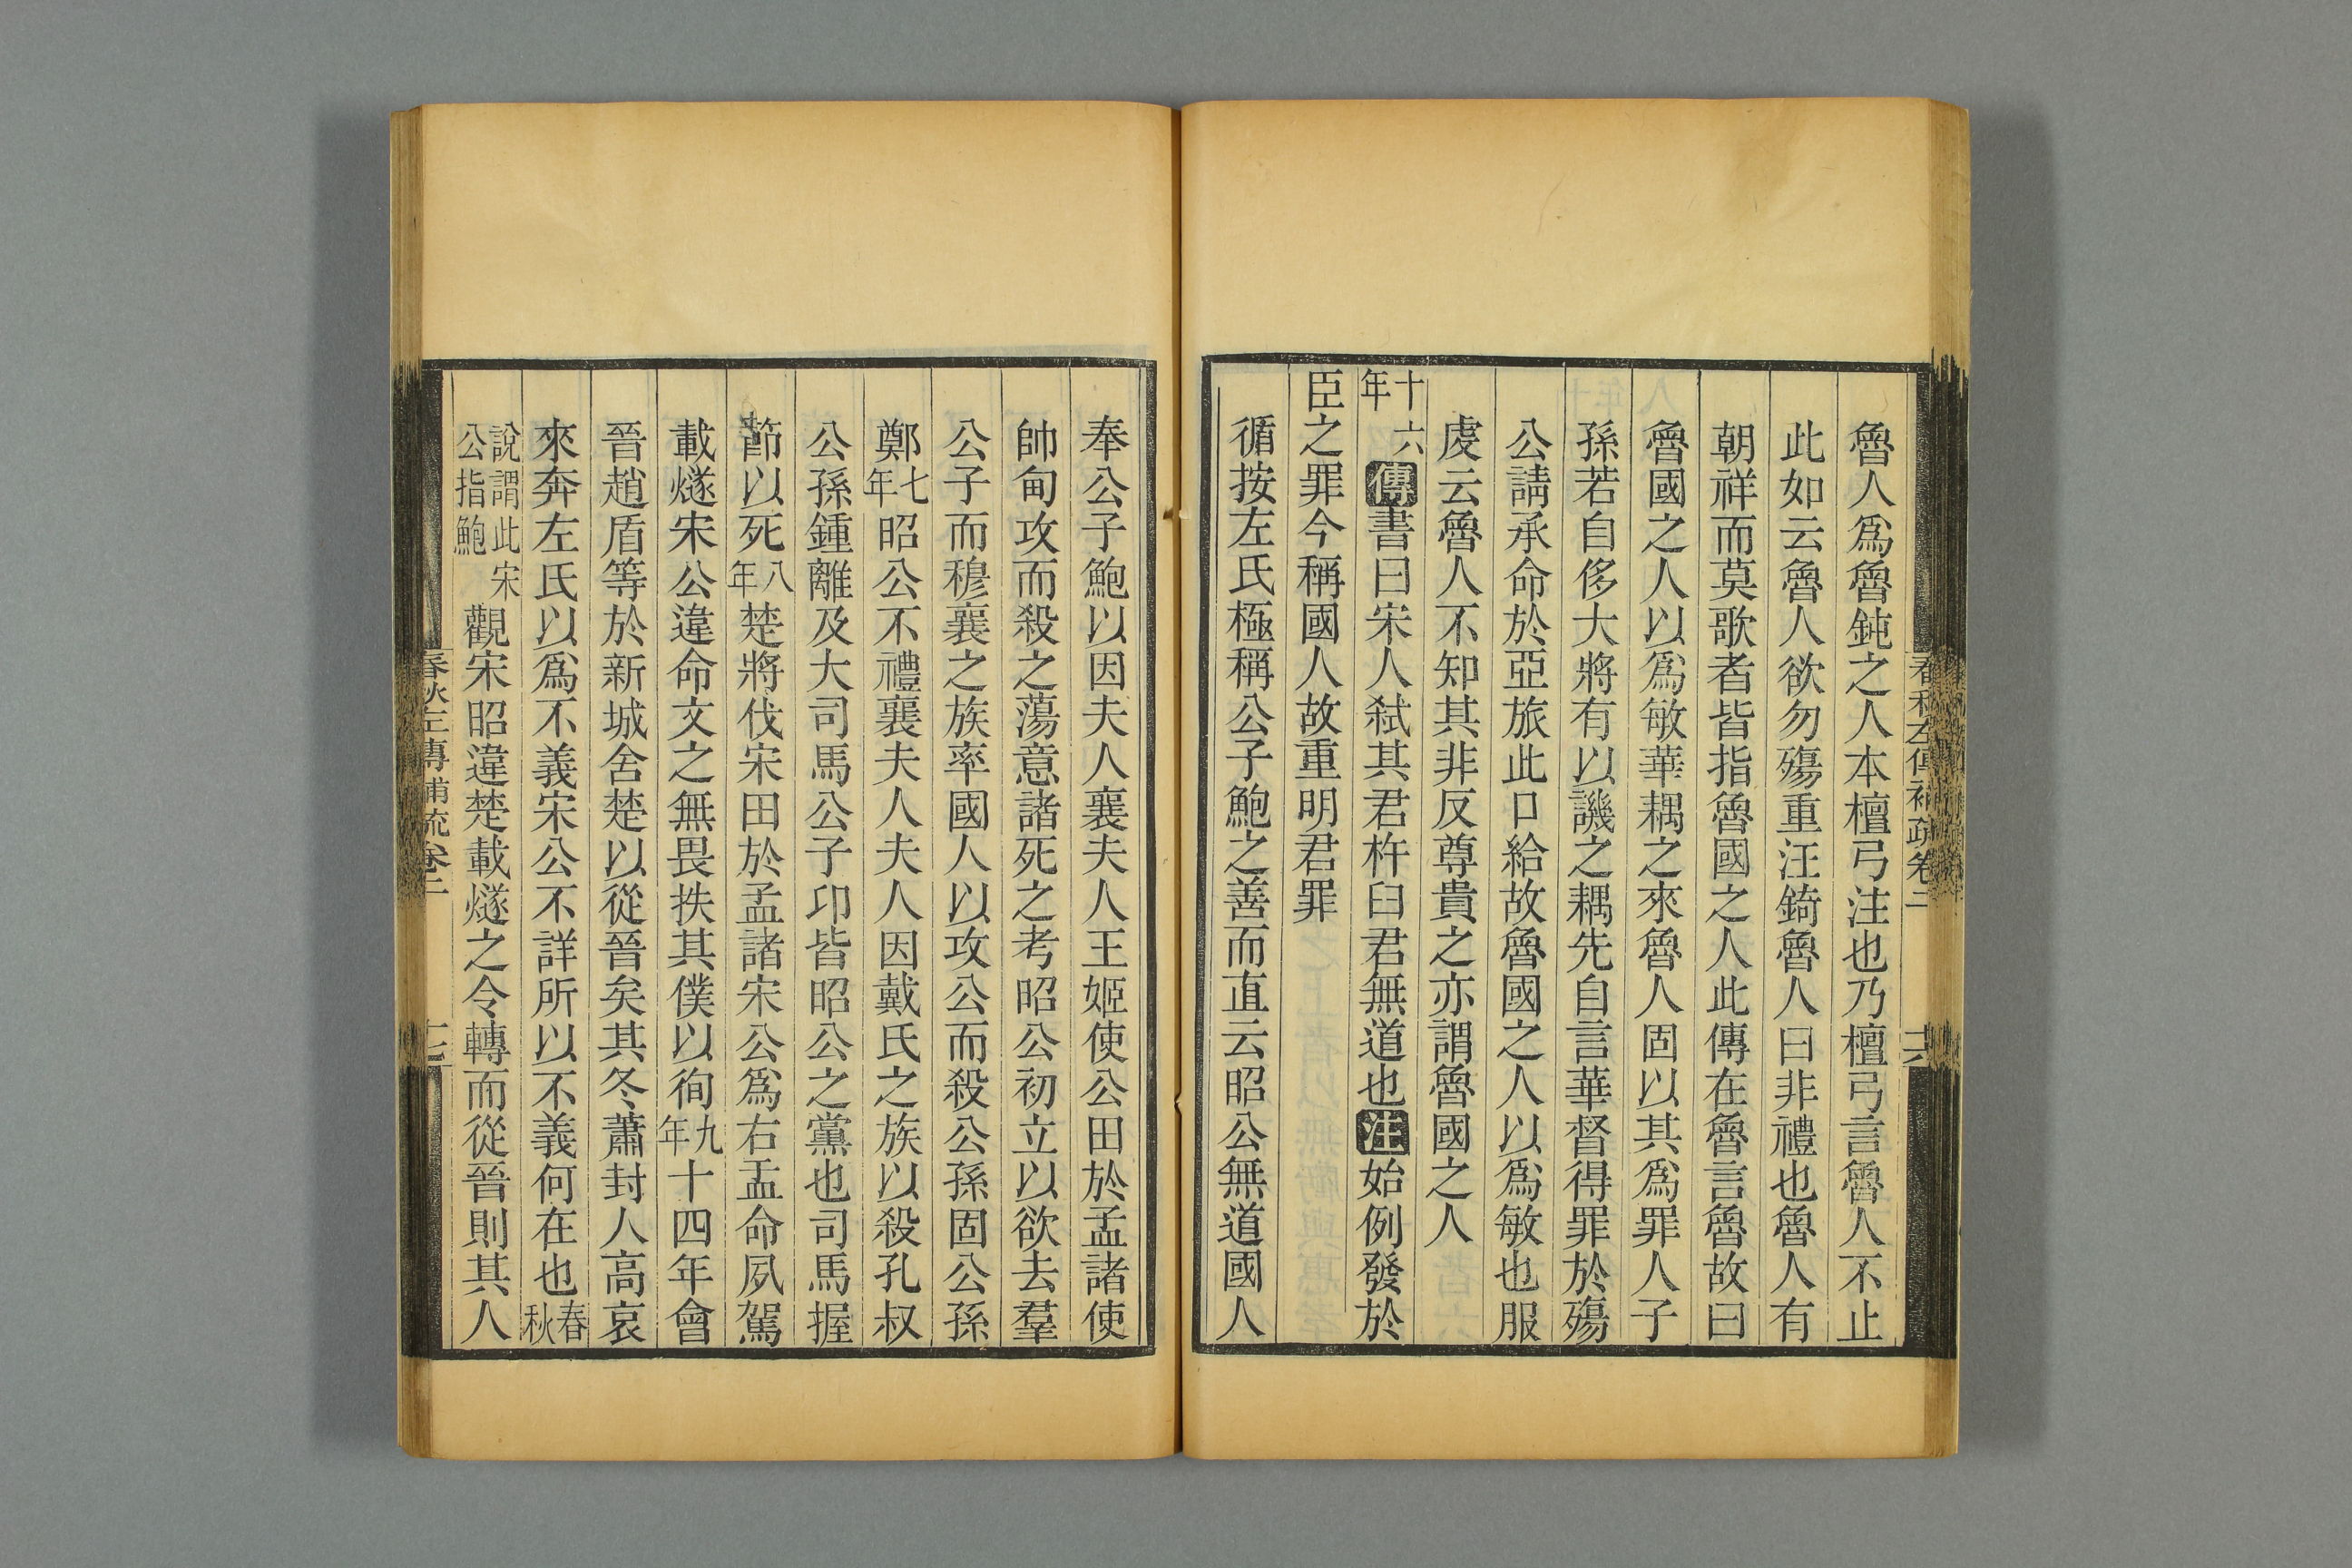 春秋左傳補疏卷二
十六
魯人爲魯鈍之人本檀弓注也乃檀弓言魯人不止
此如云魯人欲勿殤重汪錡魯人曰非禮也魯人有
朝祥而莫歌者皆指魯國之人此傳在魯言魯故曰
魯國之人以爲敏華耦之來魯人固以其爲罪人子
孫若自侈大將有以譏之耦先自言華督得罪於殤
公請承命於亞旅此口給故魯國之人以爲敏也服
虔云魯人不知其非反尊貴之亦謂魯國之人
十六年傳書曰宋人弑其君杵臼君無道也注始例發於
臣之罪今稱國人故重明君罪
循按左氏極稱公子鮑之善而直云昭公無道國人
奉公子鮑以因夫人襄夫人王姬使公田於孟諸使
帥甸攻而殺之蕩意諸死之考昭公初立以欲去羣
公子而穆襄之族率國人以攻公而殺公孫固公孫
鄭七年昭公不禮襄夫人夫人因戴氏之族以殺孔叔
公孫鍾離及大司馬公子卬皆昭公之黨也司馬握
節以死八年楚將伐宋田於孟諸宋公爲右盂命夙駕
載燧宋公違命文之無畏抶其僕以徇九年十四年會
晉趙盾等於新城舍楚以從晉矣其冬蕭封人高哀
來奔左氏以爲不義宋公不詳所以不義何在也春秋
說謂此宋公指鮑觀宋昭違楚載燧之令轉而從晉則其人
春秋左傳補疏卷二
十七